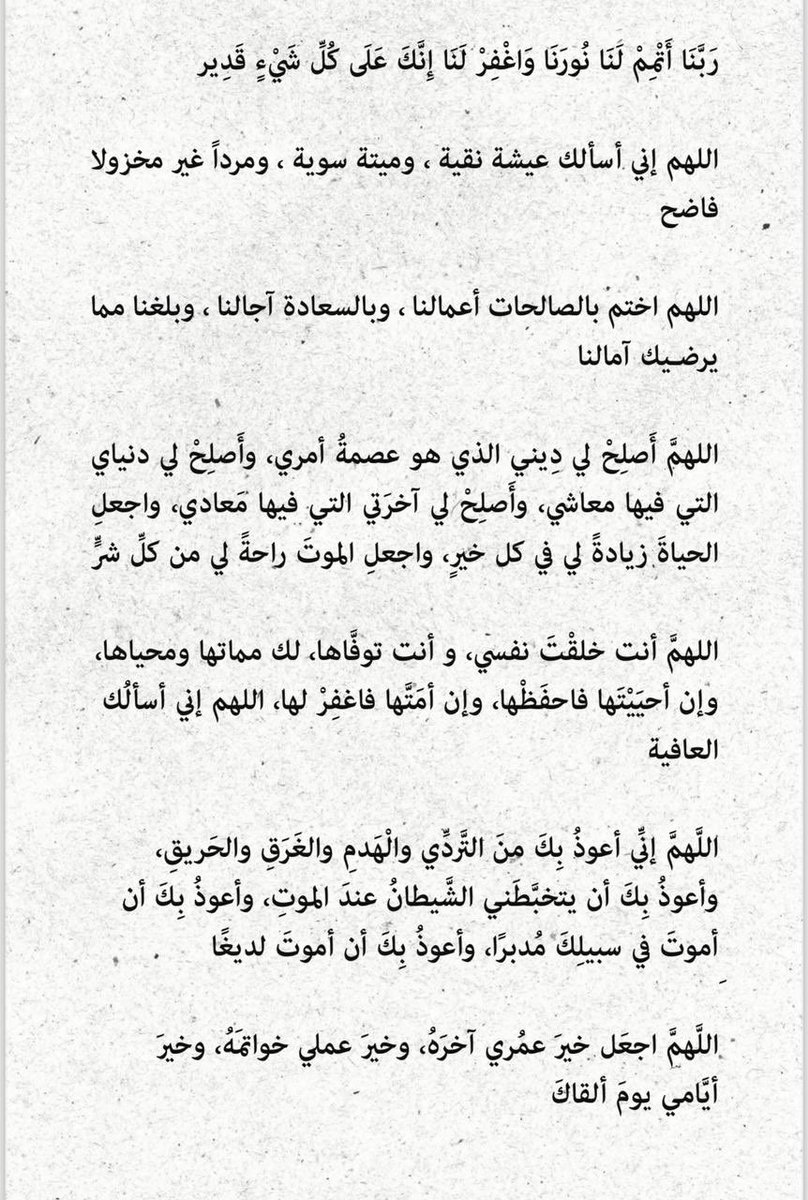 رَبَّنَا أَتْمِمْ لَنَا نُورَنَا وَاغْفِرْ لَنَا إِنَّكَ عَلَى كُلِّ شَيْءٍ قَدِير
اللهم إني أسألك عيشة نقية ، وميتة سوية ، ومرداً غير مخزولا
فاضح
اللهم اختم بالصالحات أعمالنا ، وبالسعادة آجالنا ، وبلغنا مما
يرضيك آمالنا
اللهمَّ أَصلِحْ لي دِيني الذي هو عصمةُ أمري، وأَصلِحْ لي دنياي
التي فيها معاشي، وأَصلِحْ لي آخرَتي التي فيها مَعادي، واجعلِ
الحياةَ زيادةً لي في كل خيرٍ، واجعلِ الموتَ راحةً لي من كلِّ شرٍّ
اللهمَّ أنت خلقْتَ نفسي، و أنت توفَّاها، لك مماتها ومحياها،
وإن أحيَيْتَها فاحفَظْها، وإن أمَتَّها فاغفِرْ لها، اللهم إني أسألُك
العافية
اللَّهمَّ إنِّي أعوذُ بِكَ منَ التَّردِّي والْهَدمِ والغَرَقِ والحَريقِ،
وأعوذُ بِكَ أن يتخبَّطَني الشَّيطانُ عندَ الموتِ، وأعوذُ بِكَ أن
أموتَ في سبيلِكَ مُدبرًا، وأعوذُ بِكَ أن أموتَ لديغًا
اللَّهمَّ اجعَل خيرَ عمُري آخرَهُ، وخيرَ عملي خواتمَهُ، وخيرَ
أيَّامي يومَ ألقاكَ